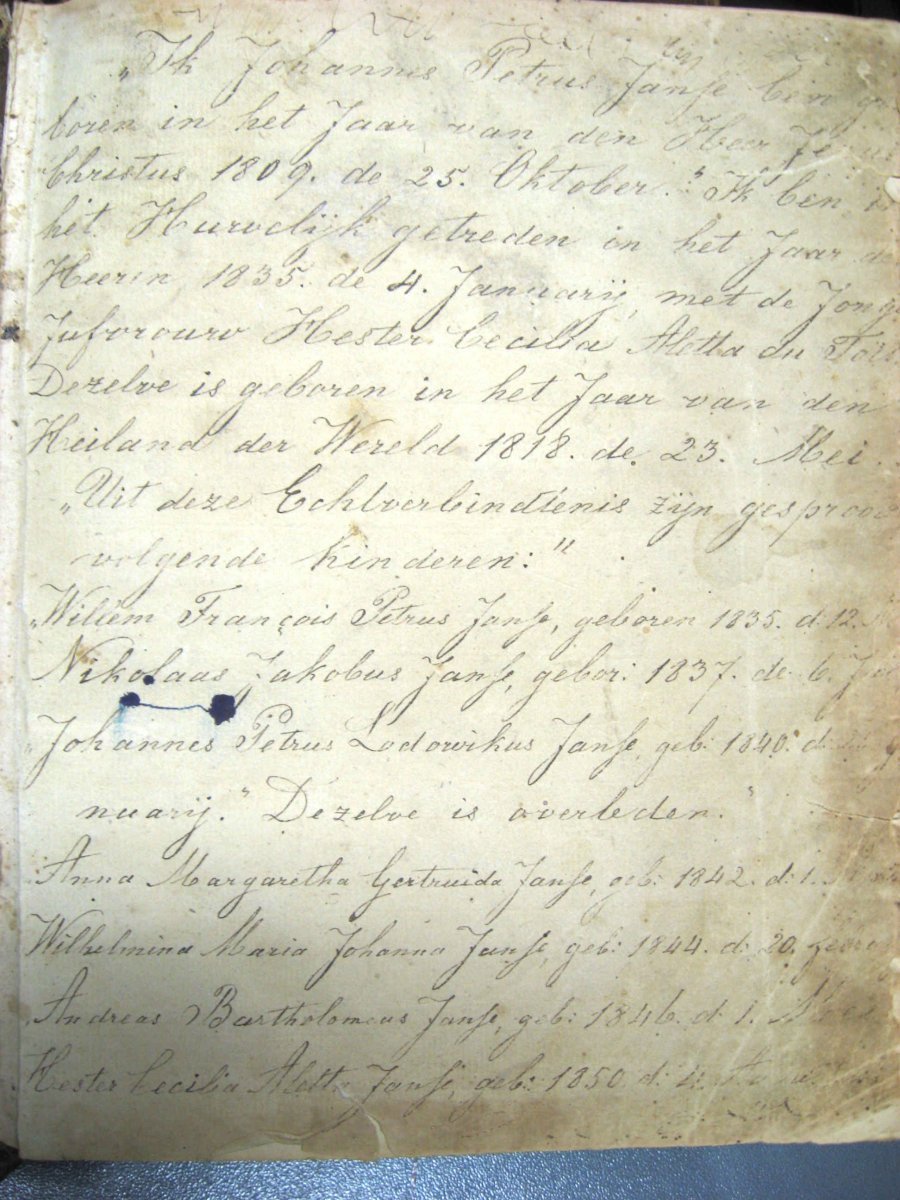 „Ik Johannes Petrus Janse ben ge
boren in het Jaar van den Heer Jesus
Christus 1809. de 25. Oktober." Ik ben in
het Huwelijk getreden in het Jaar
Heeren 1835. de 4. Januarij, met de Jonge
Jufvrouw Hester Cecilia Aletta du Toit
Dezelve is geboren in het Jaar van den
Heiland der Wereld 1818. de 23. Mei.
„Uit deze Echtverbindtenis zijn gesproo
volgende kinderen:"
„Willem François Petrus Janse, geboren 1835. d. 12.
Nikolaas Jakobus Janse, gebor: 1837. de 6.
„Johannes Petrus Lodowikus Janse, geb: 1840. d:
nuarij." Dezelve is overleden."
Anna Margaretha Gertruida Janse, geb: 1842. d: 1.
Wilhelmina Maria Johanna Janse, geb: 1844. d: 20.
Andreas Bartholomeus Janse, geb: 1846. d: 1.
Hester Cecilia Aletta Janse, geb: 1850 d: